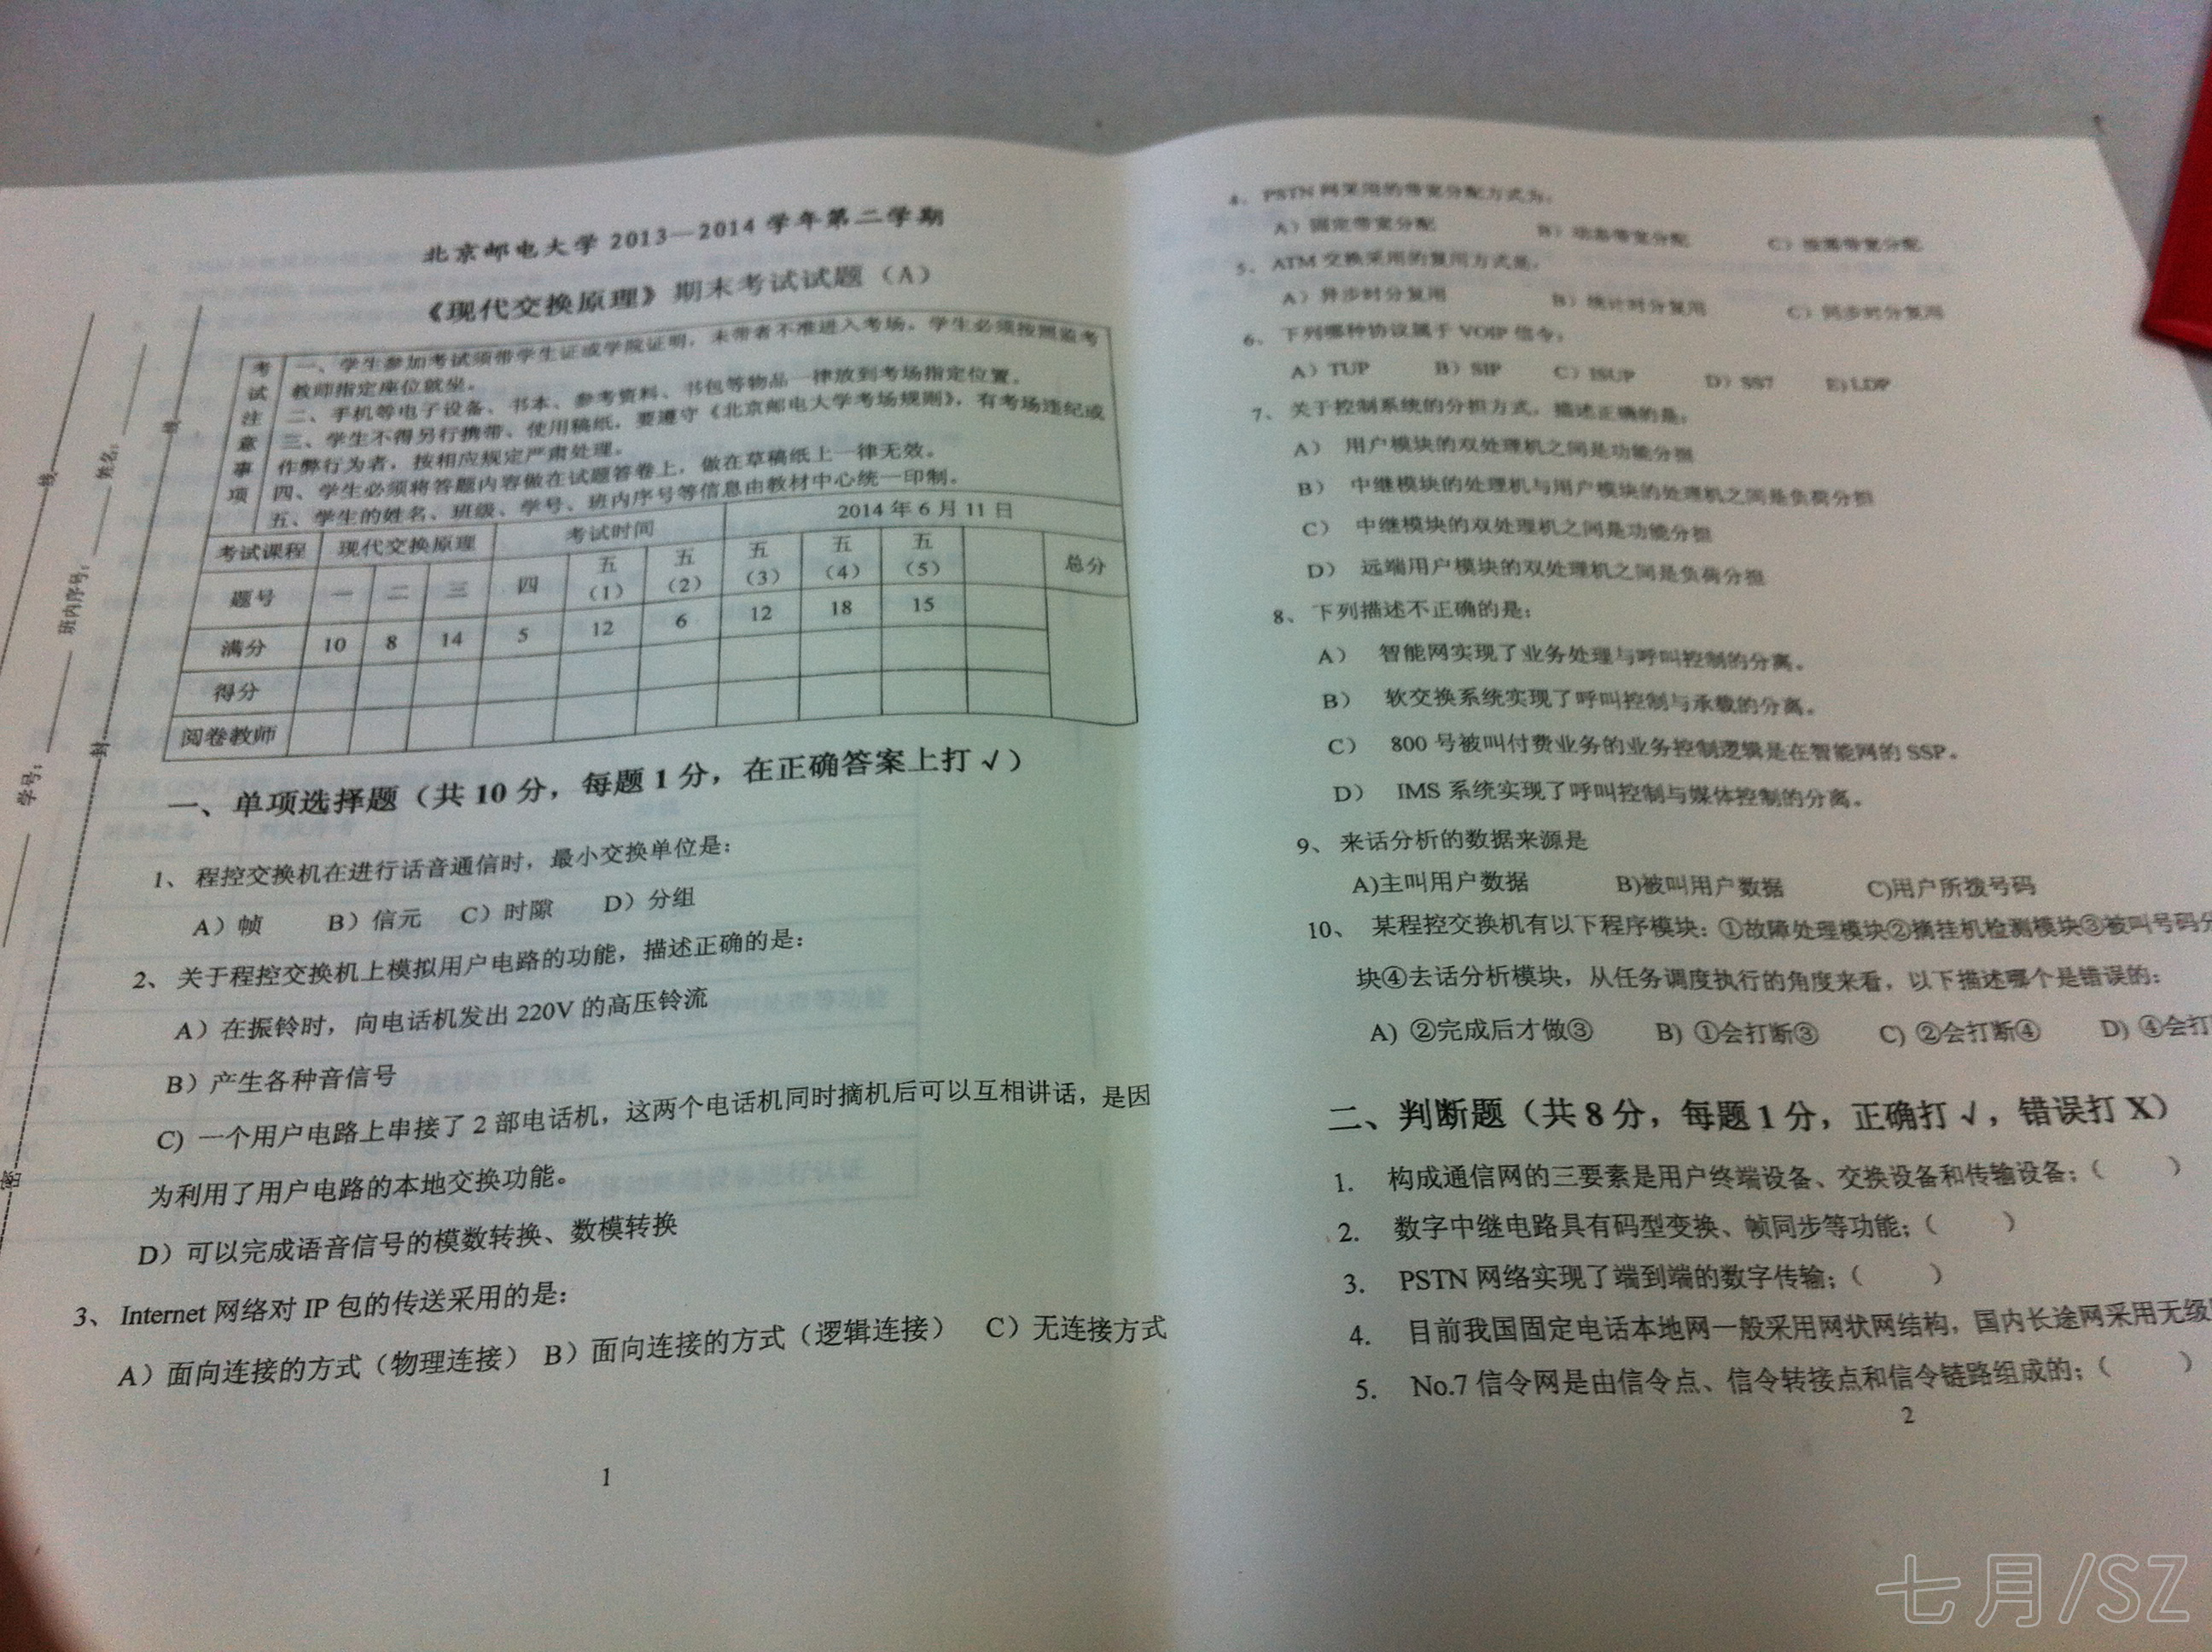 北京邮电大学 2013—2014 学年第二学期
《现代交换原理》期末考试试题（A）
考试注意事项
一、学生参加考试须带学生证或学院证明，未带者不准进入考场。学生必须按照监考
教师指定座位就坐。
二、手机等电子设备、书本、参考资料、书包等物品一律放到考场指定位置。
三、学生不得另行携带、使用稿纸，要遵守《北京邮电大学考场规则》，有考场违纪或
作弊行为者，按相应规定严肃处理。
四、学生必须将答题内容做在试题答卷上，做在草稿纸上一律无效。
五、学生的姓名、班级、学号、班内序号等信息由教材中心统一印制。
考试课程 现代交换原理 考试时间 2014 年 6 月 11 日
题号 一 二 三 四 五（1） 五（2） 五（3） 五（4） 五（5） 总分
满分 10 8 14 5 12 6 12 18 15
得分
阅卷教师
姓名：
班内序号：
学号：
线
封
密
一、单项选择题（共 10 分，每题 1 分，在正确答案上打 √）
1、 程控交换机在进行话音通信时，最小交换单位是：
A）帧 B）信元 C）时隙 D）分组
2、 关于程控交换机上模拟用户电路的功能，描述正确的是：
A）在振铃时，向电话机发出 220V 的高压铃流
B）产生各种音信号
C) 一个用户电路上串接了 2 部电话机，这两个电话机同时摘机后可以互相讲话，是因
为利用了用户电路的本地交换功能。
D）可以完成语音信号的模数转换、数模转换
3、 Internet 网络对 IP 包的传送采用的是：
A）面向连接的方式（物理连接） B）面向连接的方式（逻辑连接） C）无连接方式
1
4、 PSTN 网采用的带宽分配方式为：
A）固定带宽分配 B）动态带宽分配 C）按需带宽分配
5、 ATM 交换采用的复用方式是：
A）异步时分复用 B）统计时分复用 C）同步时分复用
6、 下列哪种协议属于 VOIP 信令：
A）TUP B）SIP C）ISUP D）SS7 E) LDP
7、 关于控制系统的分担方式，描述正确的是：
A） 用户模块的双处理机之间是功能分担
B） 中继模块的处理机与用户模块的处理机之间是负荷分担
C） 中继模块的双处理机之间是功能分担
D） 远端用户模块的双处理机之间是负荷分担
8、 下列描述不正确的是：
A） 智能网实现了业务处理与呼叫控制的分离。
B） 软交换系统实现了呼叫控制与承载的分离。
C） 800 号被叫付费业务的业务控制逻辑是在智能网的 SSP。
D） IMS 系统实现了呼叫控制与媒体控制的分离。
9、 来话分析的数据来源是
A)主叫用户数据 B)被叫用户数据 C)用户所拨号码
10、 某程控交换机有以下程序模块：①故障处理模块②摘挂机检测模块③被叫号码分
块④去话分析模块，从任务调度执行的角度来看，以下描述哪个是错误的：
A) ②完成后才做③ B) ①会打断③ C) ②会打断④ D) ④会打
二、判断题（共 8 分，每题 1 分，正确打 √，错误打 X）
1. 构成通信网的三要素是用户终端设备、交换设备和传输设备；（ ）
2. 数字中继电路具有码型变换、帧同步等功能；（ ）
3. PSTN 网络实现了端到端的数字传输；（ ）
4. 目前我国固定电话本地网一般采用网状网结构，国内长途网采用无级
5. No.7 信令网是由信令点、信令转接点和信令链路组成的；（ ）
2
七月/SZ